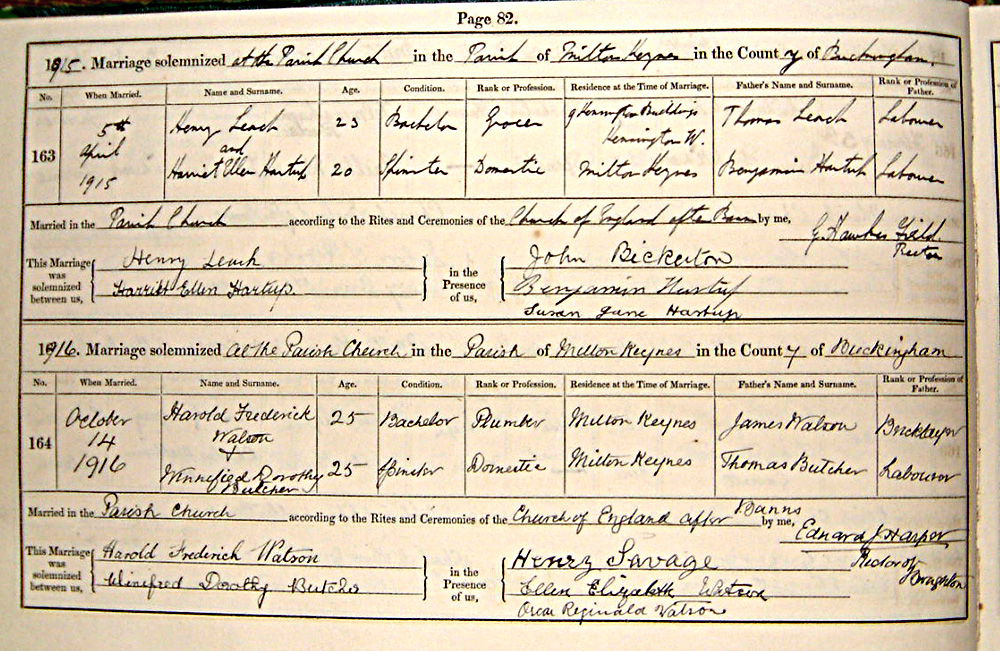 Page 82.
1915. Marriage solemnized at the Parish Church in the Parish of Milton Keynes in the County of Buckingham.
No. When Married. Name and Surname. Age. Condition. Rank or Profession. Residence at the Time of Marriage. Father's Name and Surname. Rank or Profession of Father.
163 5th April 1915 Henry Leach 23 Bachelor Grocer 9 Kensington Buildings Kensington W. Thomas Leach Labourer
and
Harriet Ellen Hartup 20 Spinster Domestic Milton Keynes Benjamin Hartup Labourer
Married in the Parish Church according to the Rites and Ceremonies of the Church of England after Banns by me,
G. Hawkes Field.
Rector
This Marriage was solemnized between us, Henry Leach in the Presence of us, John Bickerton
Harriet Ellen Hartup. Benjamin Hartup
Susan Jane Hartup
1916. Marriage solemnized at the Parish Church in the Parish of Milton Keynes in the County of Buckingham
No. When Married. Name and Surname. Age. Condition. Rank or Profession. Residence at the Time of Marriage. Father's Name and Surname. Rank or Profession of Father.
164 October 14 1916 Harold Frederick Watson 25 Bachelor Plumber Milton Keynes James Watson Bricklayer
Winnefied Dorothy Butcher 25 Spinster Domestic Milton Keynes Thomas Butcher Labourer
Married in the Parish Church according to the Rites and Ceremonies of the Church of England after Banns by me,
Edward J. Harper
Rector of Broughton
This Marriage was solemnized between us, Harold Frederick Watson in the Presence of us, Henry Savage
Winefred Dorothy Butcher Ellen Elizabeth Watson
Oscar Reginald Watson